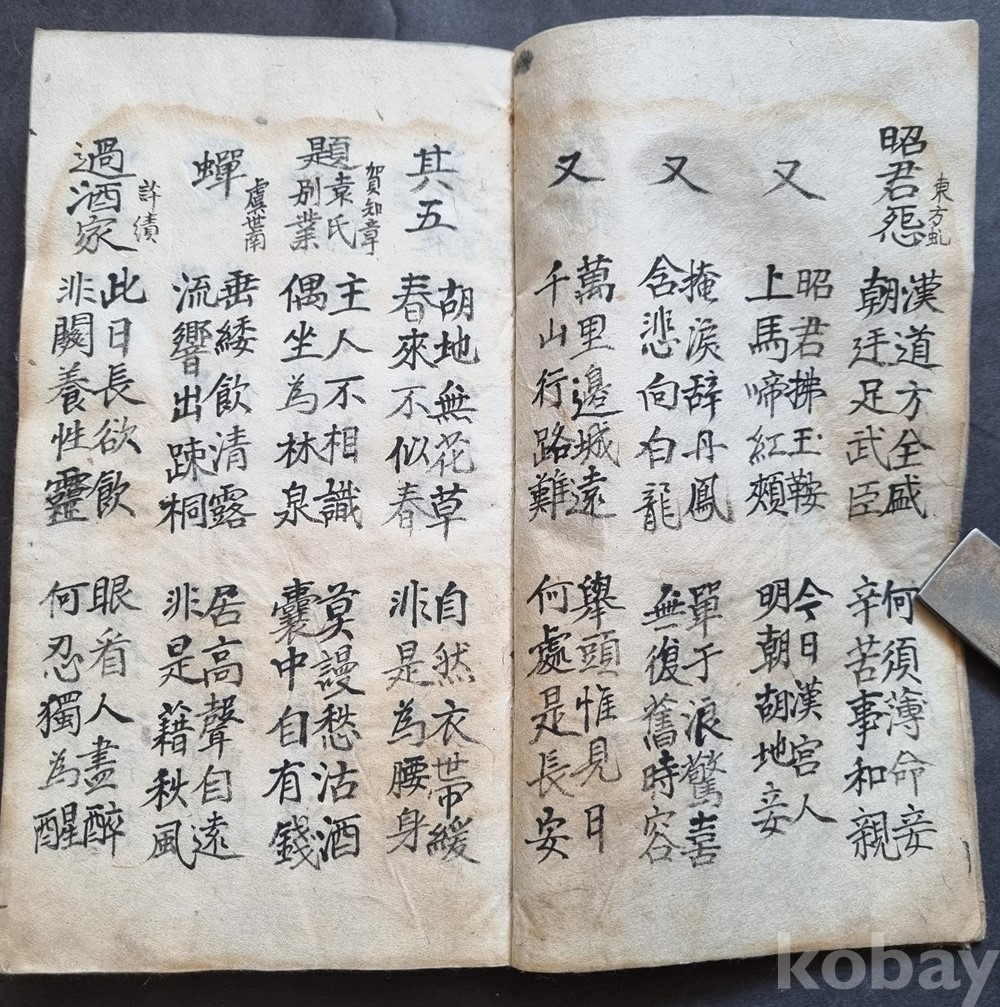 昭君怨
東方虬
漢道方全盛
朝廷足武臣
何須薄命妾
辛苦事和親
又
昭君拂玉鞍
上馬啼紅頰
今日漢宮人
明朝胡地妾
又
掩淚辞丹鳳
含悲向白龍
單于浪驚喜
無復舊時容
又
萬里邊城遠
千山行路難
舉頭惟見日
何處是長安
其五
胡地無花草
春來不似春
自然衣帶緩
非是為腰身
題袁氏別業
賀知章
主人不相識
偶坐為林泉
莫謾愁沽酒
囊中自有錢
蟬
虞世南
垂緌飮清露
流響出踈桐
居高聲自遠
非是藉秋風
過酒家
許績
此日長欲飮
非關養性靈
眼看人盡醉
何忍獨為醒
kobay